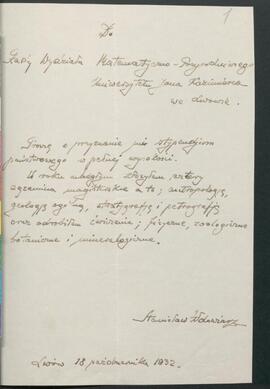 1
Do
Rady Wydziału Matematyczno-Przyrodniczego
Uniwersytetu Jana Kazimierza
we Lwowie.
Proszę o przyznanie mi stypendjum
państwowego w pełnej wysokości.
W roku ubiegłym złożyłem cztery
egzamina magisterskie a to; antropologję,
geologję ogólną, stratygrafję i petrografję
oraz odrobiłem ćwiczenia; fizyczne, zoologiczne
botaniczne i mineralogiczne.
Stanisław
Lwów 18 października 1932.